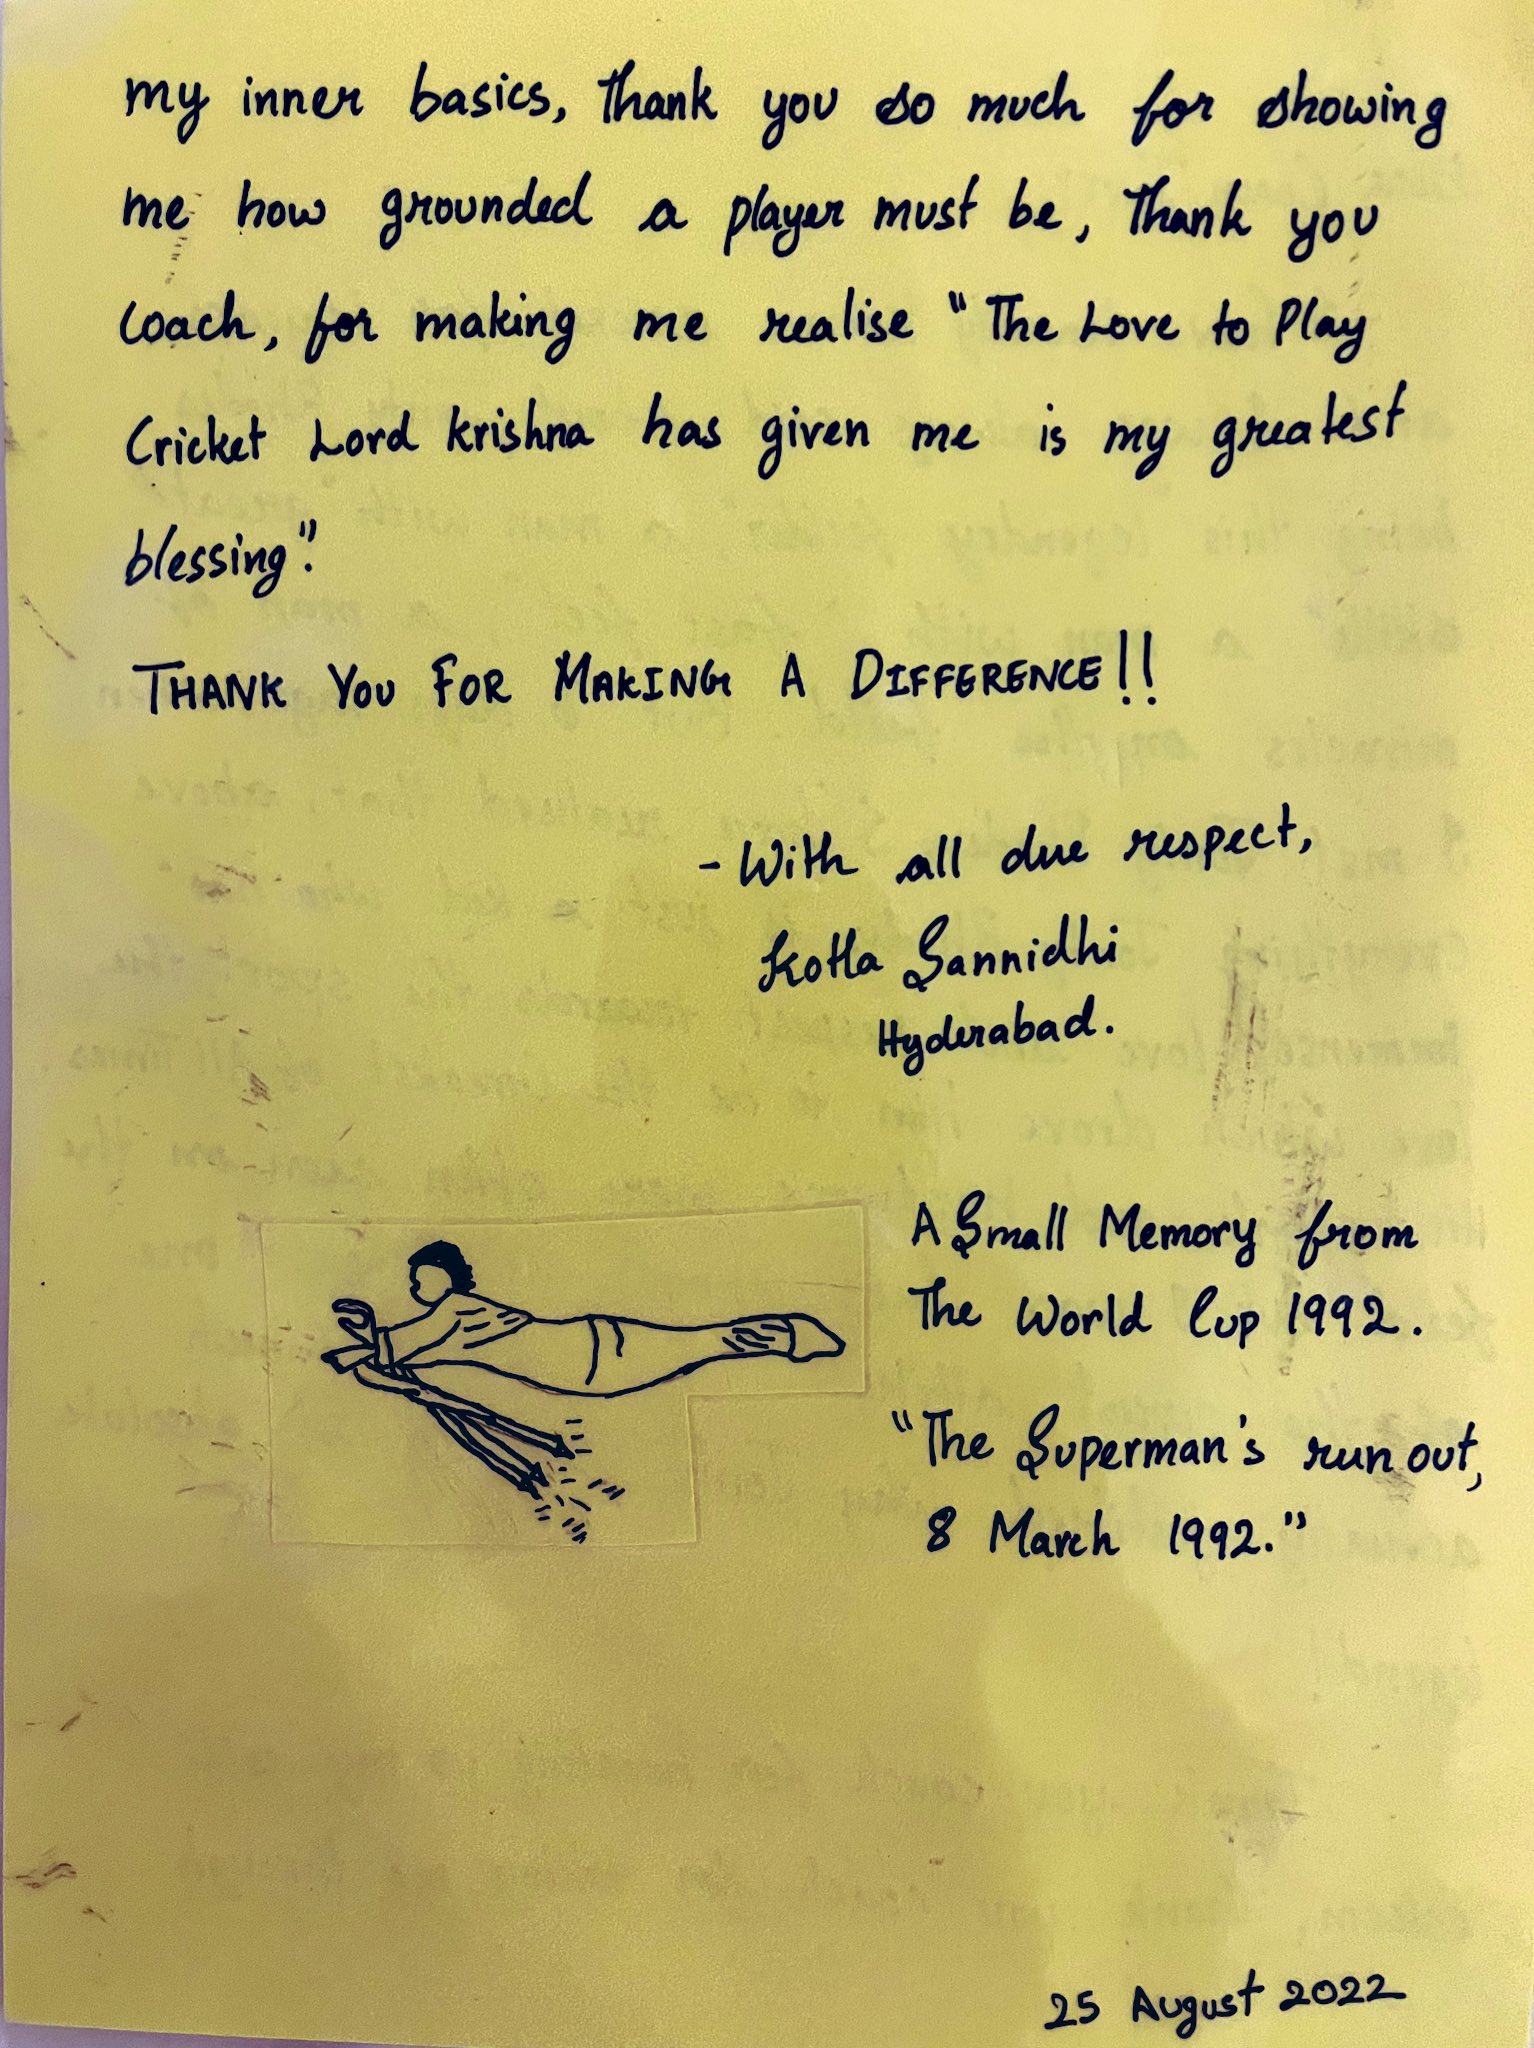 my inner basics, Thank you so much for showing
me how grounded a player must be, Thank you
Coach, for making me realise "The Love to Play
Cricket Lord Krishna has given me is my greatest
blessing".
THANK YOU FOR MAKING A DIFFERENCE!!
- With all due respect,
Kotla Sannidhi
Hyderabad.
A Small Memory from
The World Cup 1992.
"The Superman's run out,
8 March 1992."
25 August 2022